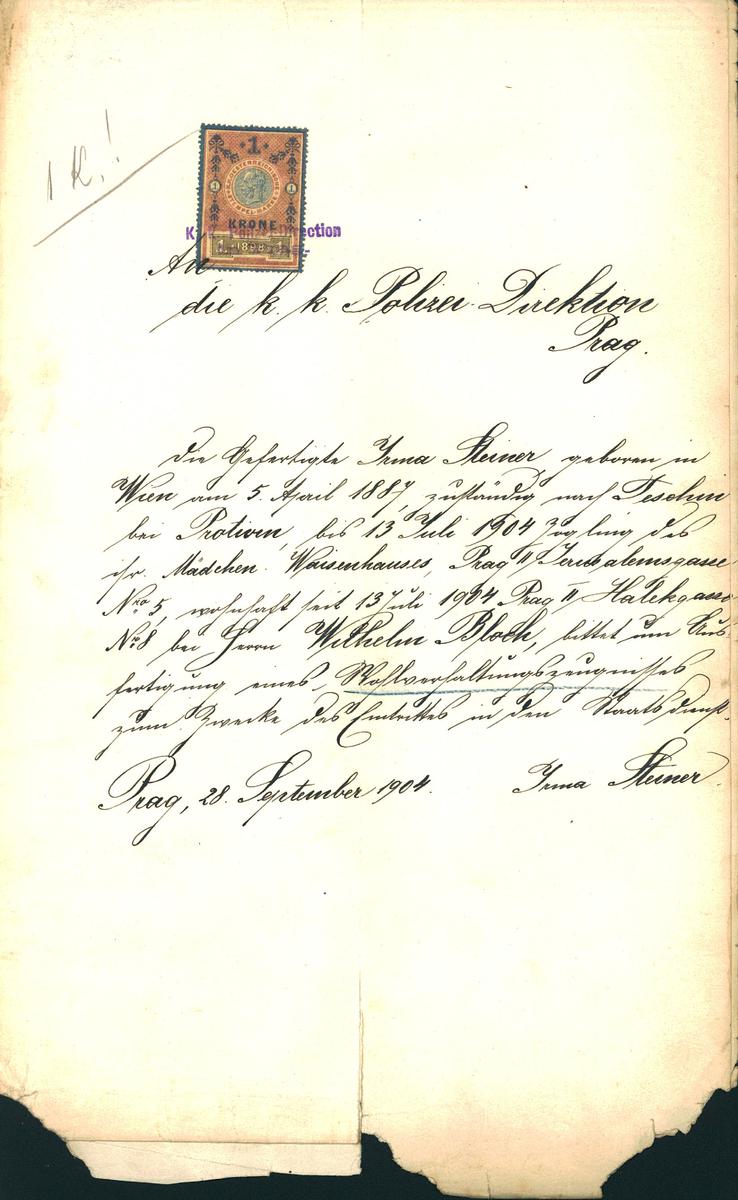 1 K.!
1
KRONE
1 1898 1
K. k. Polizei-Direction
An
die k. k. Polizei-Direktion
Prag.
Die Gefertigte Irma Steiner geboren in
Wien am 5. April 1887, zuständig nach Teschin
bei Protivin, bis 13 Juli 1904 Zögling des
isr. Mädchen-Waisenhauses, Prag II Jerusalemsgasse
Nro 5, wohnhaft seit 13 Juli 1904 Prag II Halekgasse
Nr 8 bei Herrn Wilhelm Bloch, bittet um Aus-
fertigung eines Wohlverhaltungszeugnisses
zum Zwecke des Eintrittes in den Staatsdienst.
Prag, 28. September 1904. Irma Steiner.